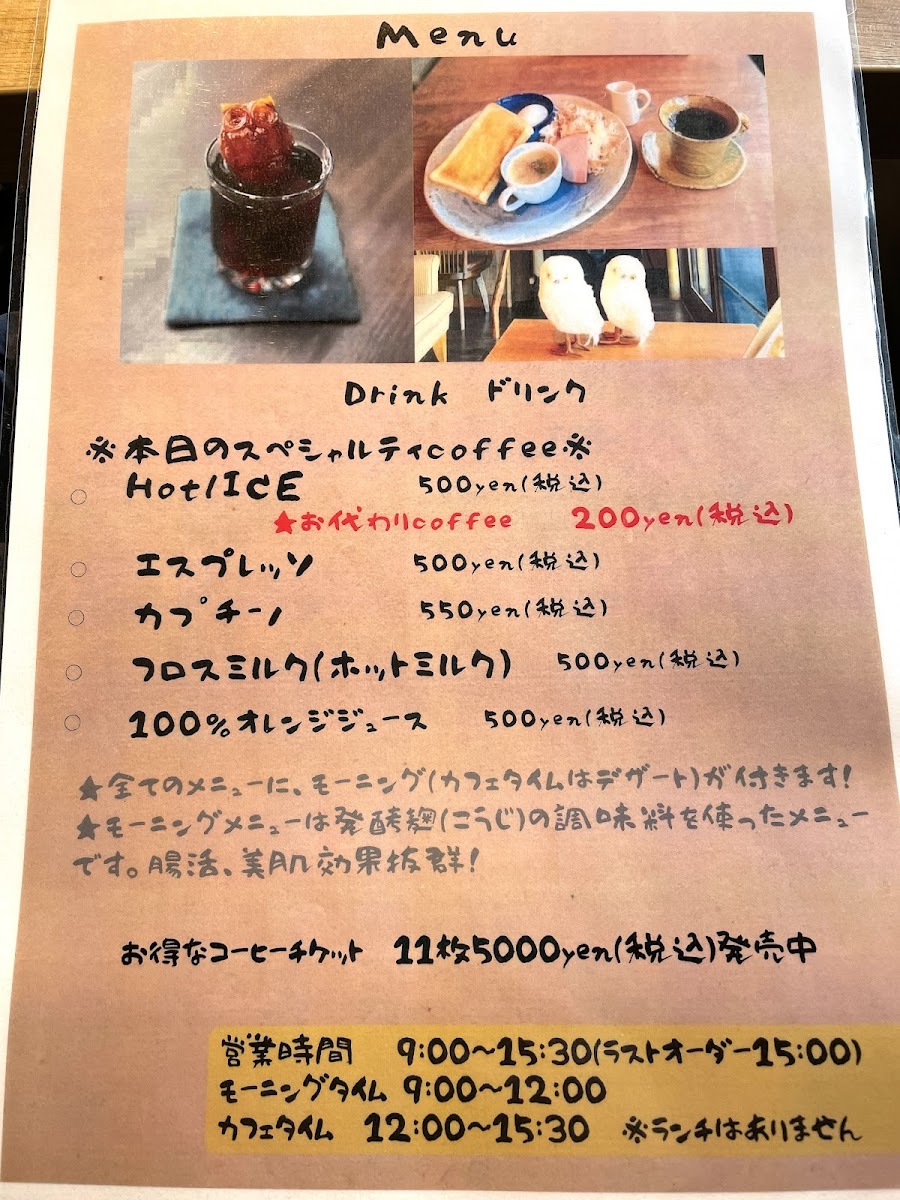 Menu
Drink ドリンク
※本日のスペシャルティcoffee※
○ Hot/ICE 500yen(税込)
★お代わりcoffee 200yen(税込)
○ エスプレッソ 500yen(税込)
○ カプチーノ 550yen(税込)
○ フロスミルク(ホットミルク) 500yen(税込)
○ 100%オレンジジュース 500yen(税込)
★全てのメニューに、モーニング(カフェタイムはデザート)が付きます!
★モーニングメニューは発酵麹(こうじ)の調味料を使ったメニュー
です。腸活、美肌効果抜群!
お得なコーヒーチケット 11枚5000yen(税込)発売中
営業時間 9:00～15:30(ラストオーダー15:00)
モーニングタイム 9:00～12:00
カフェタイム 12:00～15:30 ※ランチはありません